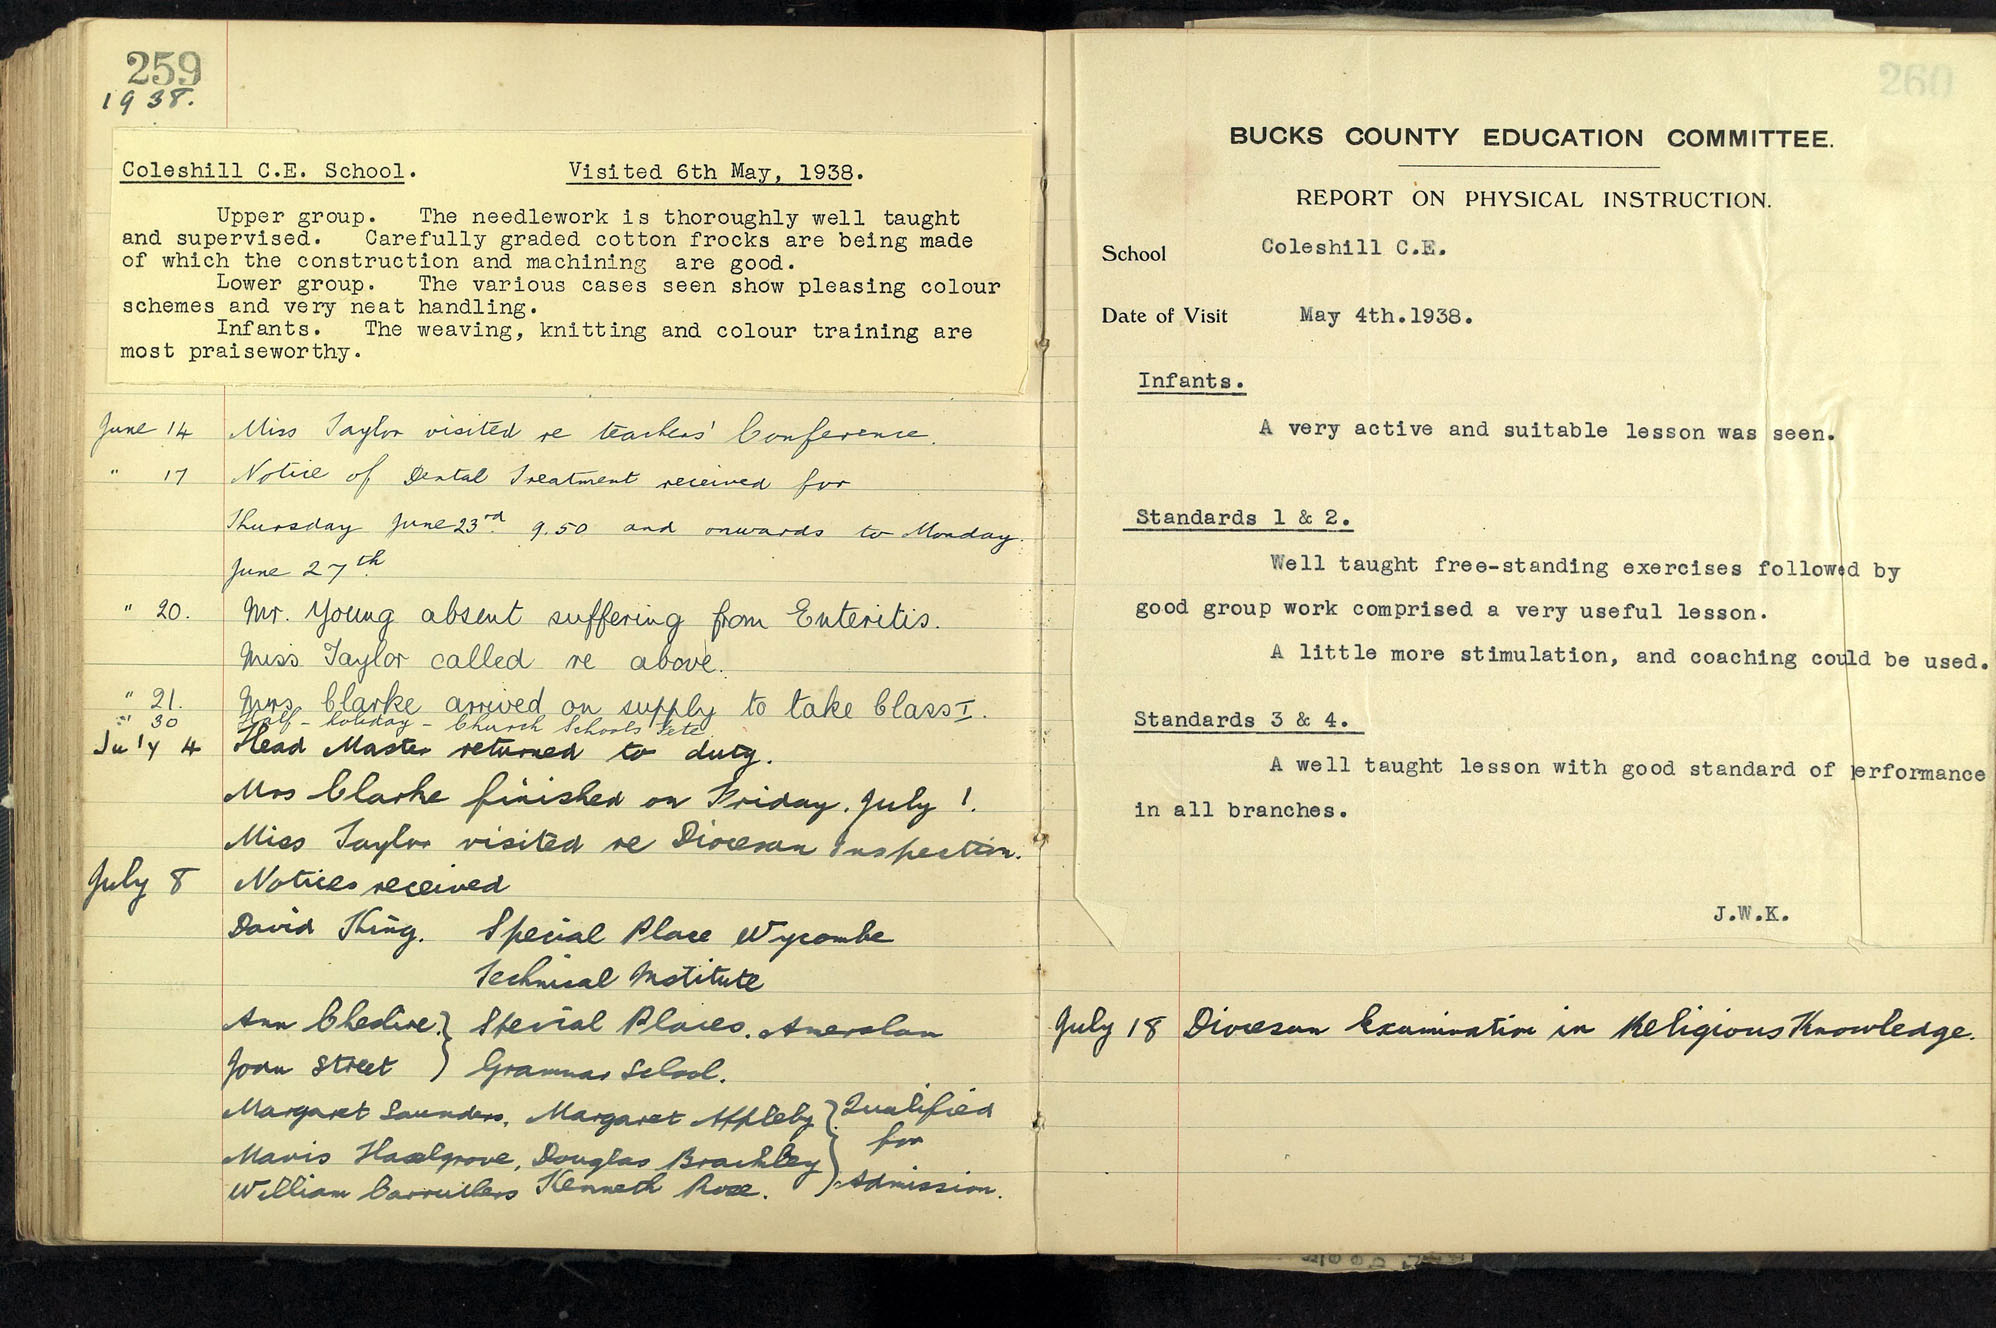 259
1938.
Coleshill C.E. School. Visited 6th May, 1938.
Upper group. The needlework is thoroughly well taught
and supervised. Carefully graded cotton frocks are being made
of which the construction and machining are good.
Lower group. The various cases seen show pleasing colour
schemes and very neat handling.
Infants. The weaving, knitting and colour training are
most praiseworthy.
June 14 Miss Taylor visited re teachers' Conference.
" 17 Notice of Dental Treatment received for
Thursday June 23rd 9.50 and onwards to Monday.
June 27th
" 20. Mr. Young absent suffering from Enteritis.
Miss Taylor called re above.
" 21. Mrs Clarke arrived on supply to take Class I.
" 30 Half-holiday - Church Schools Fete
July 4 Head Master returned to duty.
Mrs Clarke finished on Friday. July 1.
Miss Taylor visited re Diocesan Inspection.
July 8 Notices received
David King. Special Place Wycombe
Technical Institute
Ann Cheshire } Special Places. Amersham
Joan Street } Grammar School.
Margaret Saunders, Margaret Appleby } Qualified
for
Mavis Haselgrove, Douglas Brackley
William Carruthers Kenneth Rose. } Admission.
260
BUCKS COUNTY EDUCATION COMMITTEE.
REPORT ON PHYSICAL INSTRUCTION.
School Coleshill C.E.
Date of Visit May 4th.1938.
Infants.
A very active and suitable lesson was seen.
Standards 1 & 2.
Well taught free-standing exercises followed by
good group work comprised a very useful lesson.
A little more stimulation, and coaching could be used.
Standards 3 & 4.
A well taught lesson with good standard of performance
in all branches.
J.W.K.
July 18 Diocesan Examination in Religious Knowledge.